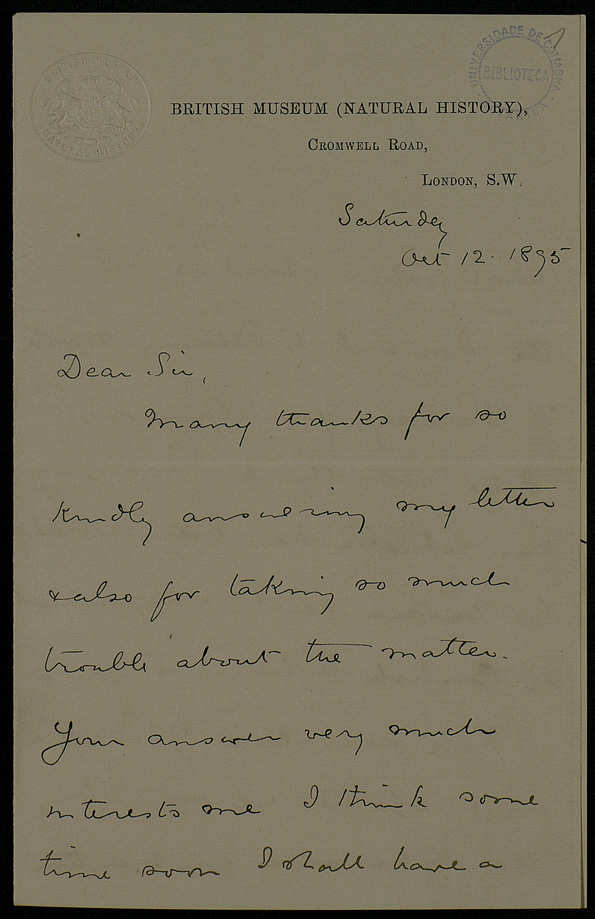 BRITISH MUSEUM
NATURAL HISTORY
UNIVERSIDADE DE COIMBRA
BIBLIOTECA
BRITISH MUSEUM (NATURAL HISTORY),
CROMWELL ROAD,
LONDON, S.W.
Saturday
Oct 12. 1895
Dear Sir,
Many thanks for so
kindly answering my letter
& also for taking so much
trouble about the matter.
Your answer very much
interests me I think some
time soon I shall have a